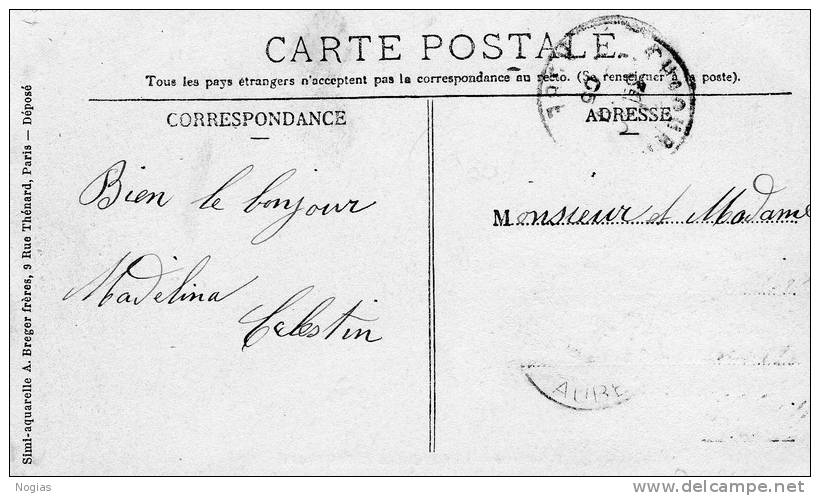 CARTE POSTALE
Tous les pays étrangers n'acceptent pas la correspondance au recto. (Se renseigner à la poste).
CORRESPONDANCE
ADRESSE
Bien le bonjour
Madelina
Celestin
Monsieur et Madame
AUBE
Simi-aquarelle A. Breger frères, 9 Rue Thénard, Paris — Déposé
Nogias
www.delcampe.net